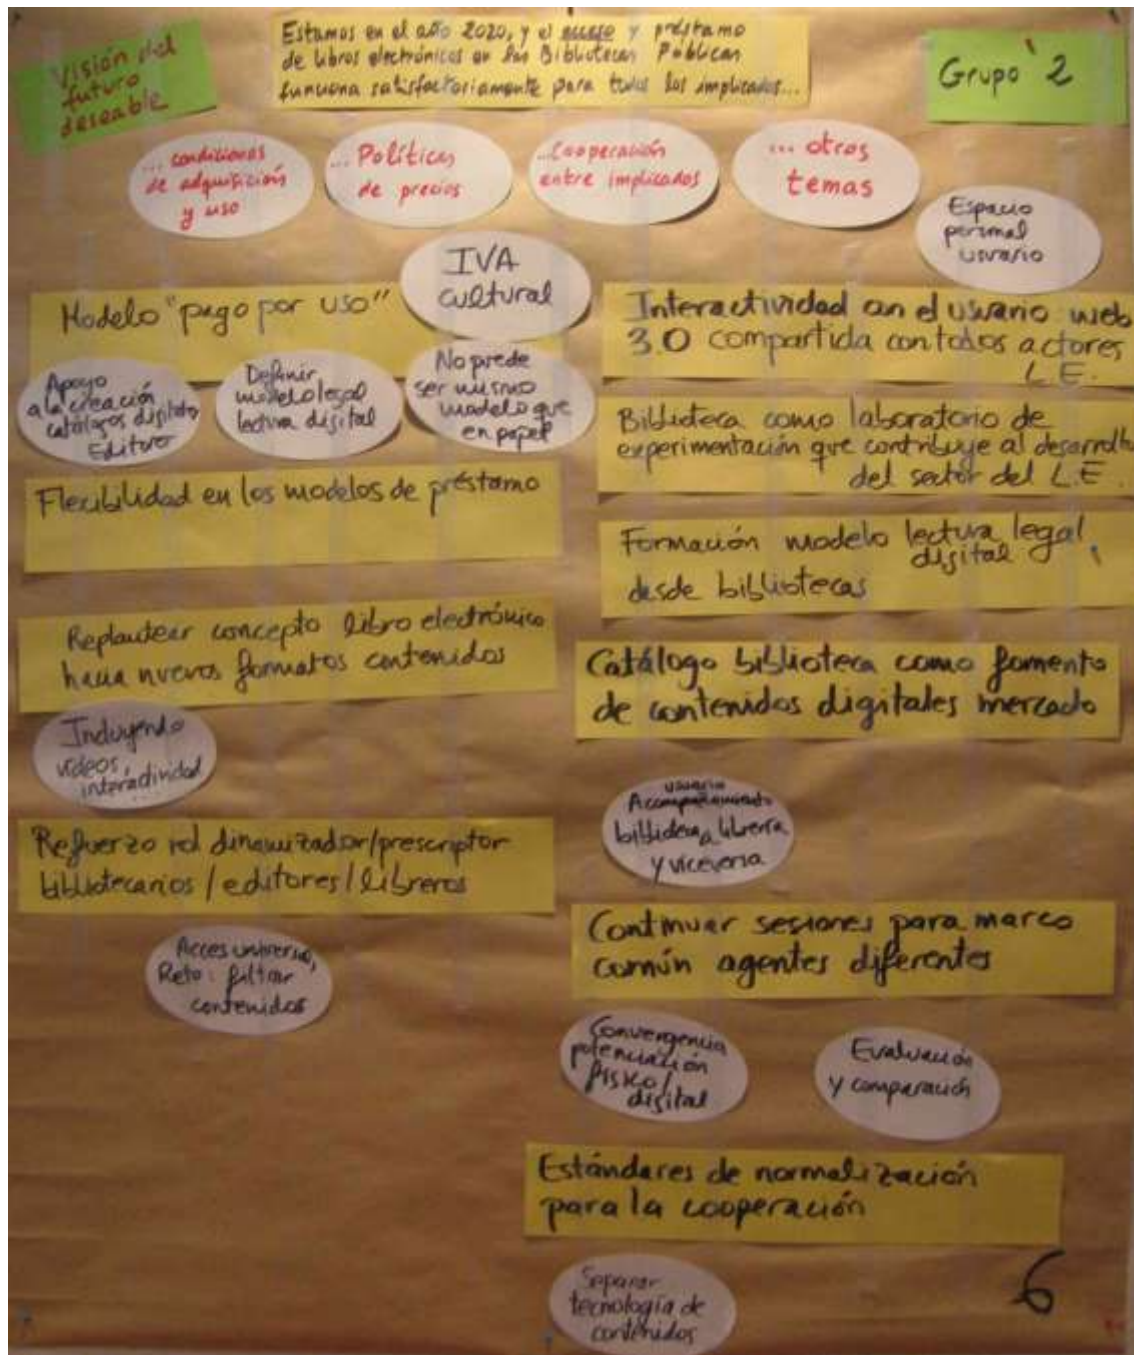 Visión del
futuro
deseable
Estamos en el año 2020, y el acceso y préstamo
de libros electrónicos en las Bibliotecas Públicas
funciona satisfactoriamente para todos los implicados...
Grupo 2
... condiciones
de adquisición
y uso
... Políticas
de precios
... Cooperación
entre implicados
... otros
temas
Espacio
personal
usuario
IVA
cultural
Modelo "pago por uso"
Apoyo
a la creación
catálogos digitales
Editores
Definir
modelo legal
lectura digital
No puede
ser mismo
modelo que
en papel
Flexibilidad en los modelos de préstamo
Replantear concepto libro electrónico
hacia nuevos formatos contenidos
Incluyendo
vídeos,
interactividad
Refuerzo rol dinamizador/prescriptor
bibliotecarios/editores/libreros
Acces universal,
Reto: filtrar
contenidos
Interactividad con el usuario web
3.0 compartida con todos actores
L.E.
Biblioteca como laboratorio de
experimentación que contribuye al desarrollo
del sector del L.E.
Formación modelo lectura legal
digital
desde bibliotecas
Catálogo biblioteca como fomento
de contenidos digitales mercado
usuario
Acompañamiento
biblioteca a librería
y viceversa
Continuar sesiones para marco
común agentes diferentes
Convergencia
potenciación
físico/
digital
Evaluación
y comparación
Estándares de normalización
para la cooperación
Separar
tecnología de
contenidos
6